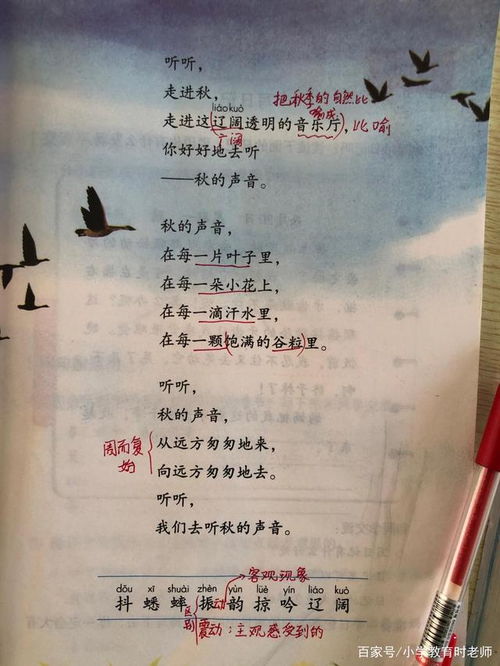 听听，
走进秋，
把秋季的自然比
喻成
liáo kuò
走进这辽阔透明的音乐厅，比喻
广阔
你好好地去听
——秋的声音。
秋的声音，
在每一片叶子里，
在每一朵小花上，
在每一滴汗水里，
在每一颗饱满的谷粒里。
听听，
秋的声音，
周而复
始
从远方匆匆地来，
向远方匆匆地去。
听听，
我们去听秋的声音。
客观现象
dǒu xī shuài zhèn yùn lüè yín liáo kuò
抖 蟋 蟀 振 动 韵 掠 吟 辽 阔
区别
震动：主观感受到的
百家号/小学教育时老师